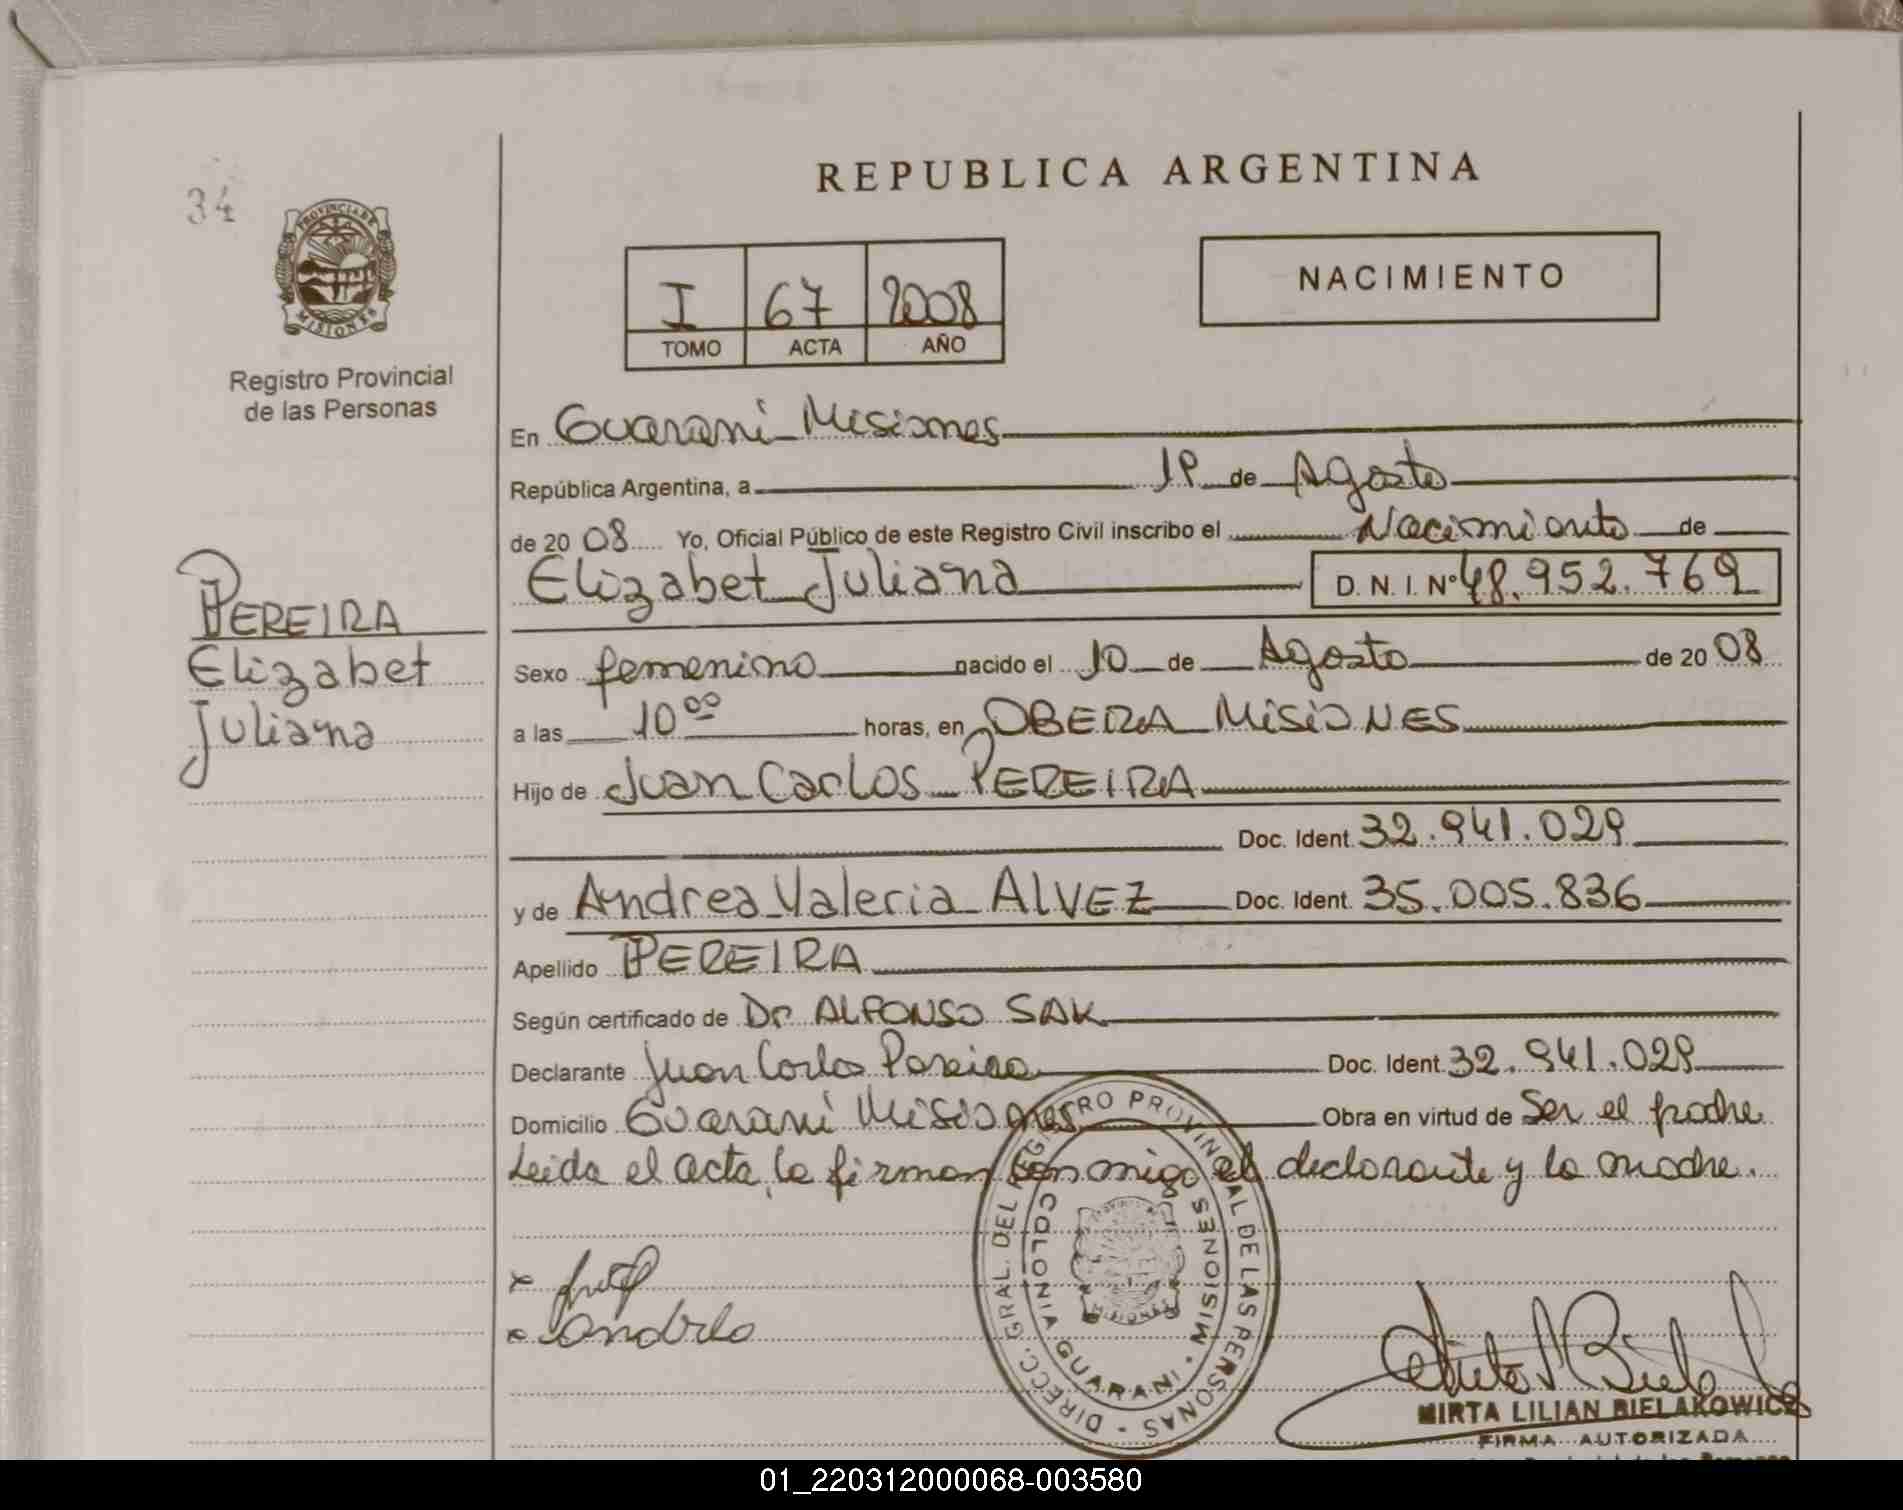 34
PROVINCIA DE
MISIONES
Registro Provincial
de las Personas
REPUBLICA ARGENTINA
I 67 2008
TOMO ACTA AÑO
NACIMIENTO
En Guarani Misiones
República Argentina, a de Agosto
de 20 08 Yo, Oficial Público de este Registro Civil inscribo el Nacimiento de
Elizabet Juliana D. N. I. Nº 48.952.769
PEREIRA
Elizabet
Juliana
Sexo femenino nacido el 10 de Agosto de 20 08
a las 10 00 horas, en OBERA MISIONES
Hijo de Juan Carlos PEREIRA
Doc. Ident. 32.941.029
y de Andrea Valeria ALVEZ Doc. Ident. 35.005.836
Apellido PEREIRA
Según certificado de Dr ALFONSO SAK
Declarante Juan Carlos Pereira Doc. Ident. 32.941.029
Domicilio Guarani Misiones Obra en virtud de Ser el padre
Leida el acta, la firman conmigo el declarante y la madre.
DIRECC. GRAL. DEL REGISTRO PROVINCIAL DE LAS PERSONAS -
COLONIA GUARANI - MISIONES
MISIONES
MIRTA LILIAN BIELAKOWICZ
FIRMA AUTORIZADA
01_220312000068-003580